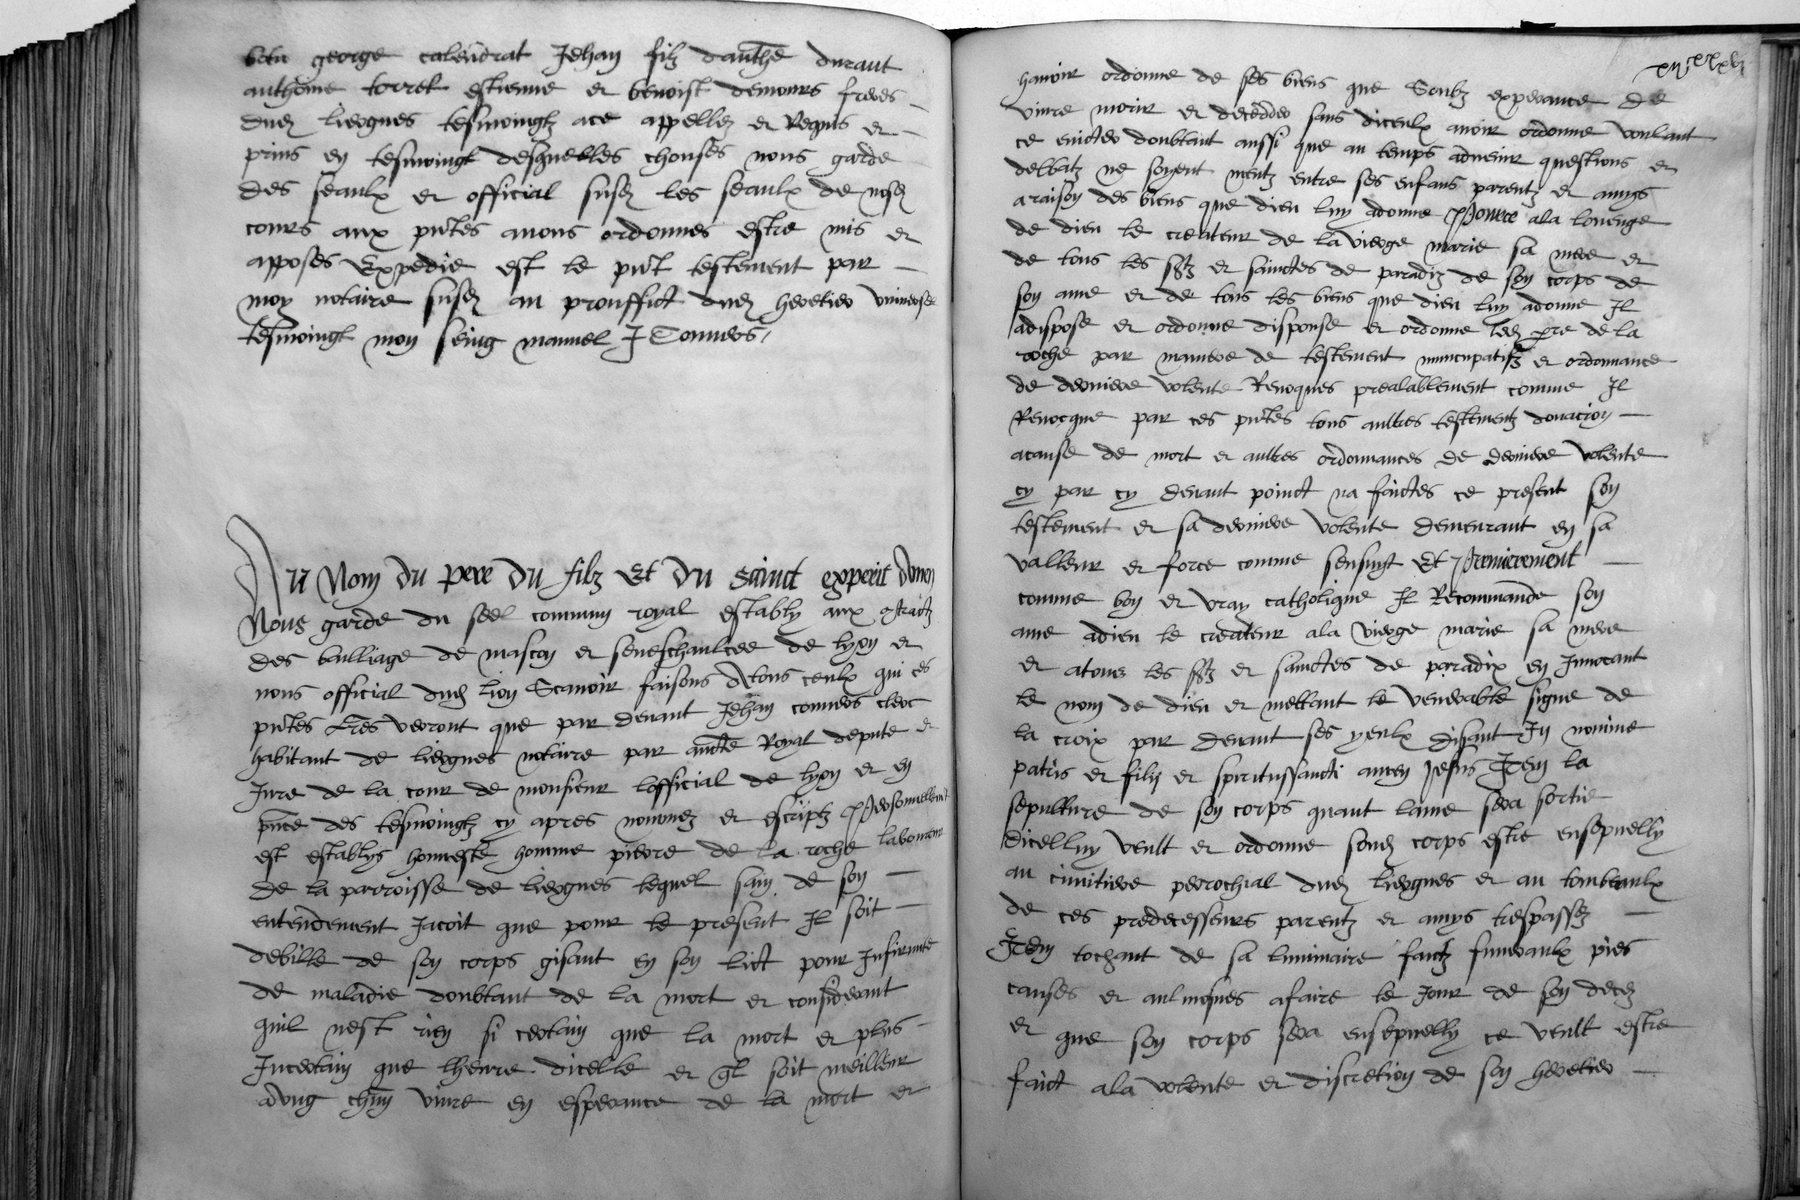 george calendrat Jehan filz danthe durant
anthoine torret estienne et benoist demours freres
dudz liergues tesmoingtz ace appellez et Requis et
prins en tesmoingt desquelles chouses nous garde
des seaulx et official susdz les seaulx de nosdz
cours aux pntes avons ordonnes estre mis et
apposes Expedie est le pnt testement par
moy notaire susdz au prouffict dudz heretier
tesmoingt mon seing manuel J Conuers
Au Nom du pere du filz Et du sainct esperit amen
Nous garde du seel commun royal estably aux
des bailliage de mascon et seneschaulcee de lyon et
nous official dudz lion Scavoir faisons Atous ceulx qui ces
pntes lres verront que par devant Jehan conuers clerc
habitant de liergues notaire par aucte Royal depute et
Jure de la cour de monsieur lofficial de lyon et en
pnce des tesmoingtz cy apres nommez et escriptz Personnellement
est establys honneste homme pierre de la roche laboureur
de la parroisse de liergues lequel sain de son
entendement Jacoit que pour le present Il soit
debille de son corps gisant en son lict pour Infirmite
de maladie doubtant de la mort et considerant
quil nest rien si certain que la mort et plus
Incertain que lheure dicelle et ql soit meilleur
adung chun vivre en esperance de la mort et
havoir ordonne de ses biens que Soubz experance de
vivre morir et deceddeo sans diceulx avoir ordonne voulant
ce eviteo doubtant aussi que au temps advenir questions et
debbatz ne soyent meutz entre ses enfans parentz et amys
araison des biens que dieu luy adonne Pource ala louenge
de dieu le createur de la vierge marie sa mere et
de tous les sstz et sainctes de paradiz de son corps de
son ame et de tous les biens que dieu luy adonne Il
adispose et ordonne dispouse et ordonne ledz pre de la
roche par maniere de testement nuncupatifz et ordonnance
de derniere volente Revoques prealablement comme Il
Revocque par ces pntes tous aultres testementz donacion
acause de mort et aultres ordonnances de derniere volente
cy par cy devant poinct na faictes ce present son
testement et sa derniere volente demeurant en sa
valleur et force comme sensuyt Et Premierement
comme bon et vray catholique Il Recommande son
ame adieu le createur ala vierge marie sa mere
et atous les sstz et sainctes de paradix en Invocant
le nom de dieu et mettant le venerable signe de
la croix par devant ses yeulx disant In nomine
patris et filij et spiritussancti amen Jesus Item la
sepulture de son corps quant lame sera sortie
dicelluy veult et ordonne sondz corps estre ensepuelly
au cimitiere perrochial dudz liergues et au tombeaulx
de ces predecesseurs parentz et amys trespassez
Item tochant de sa luminaire faictz funeraulx pies
causes et aulmosnes afaire le Jour de son decez
et que son corps sera ensepuelly ce veult estre
faict ala volente et discretion de son heretier